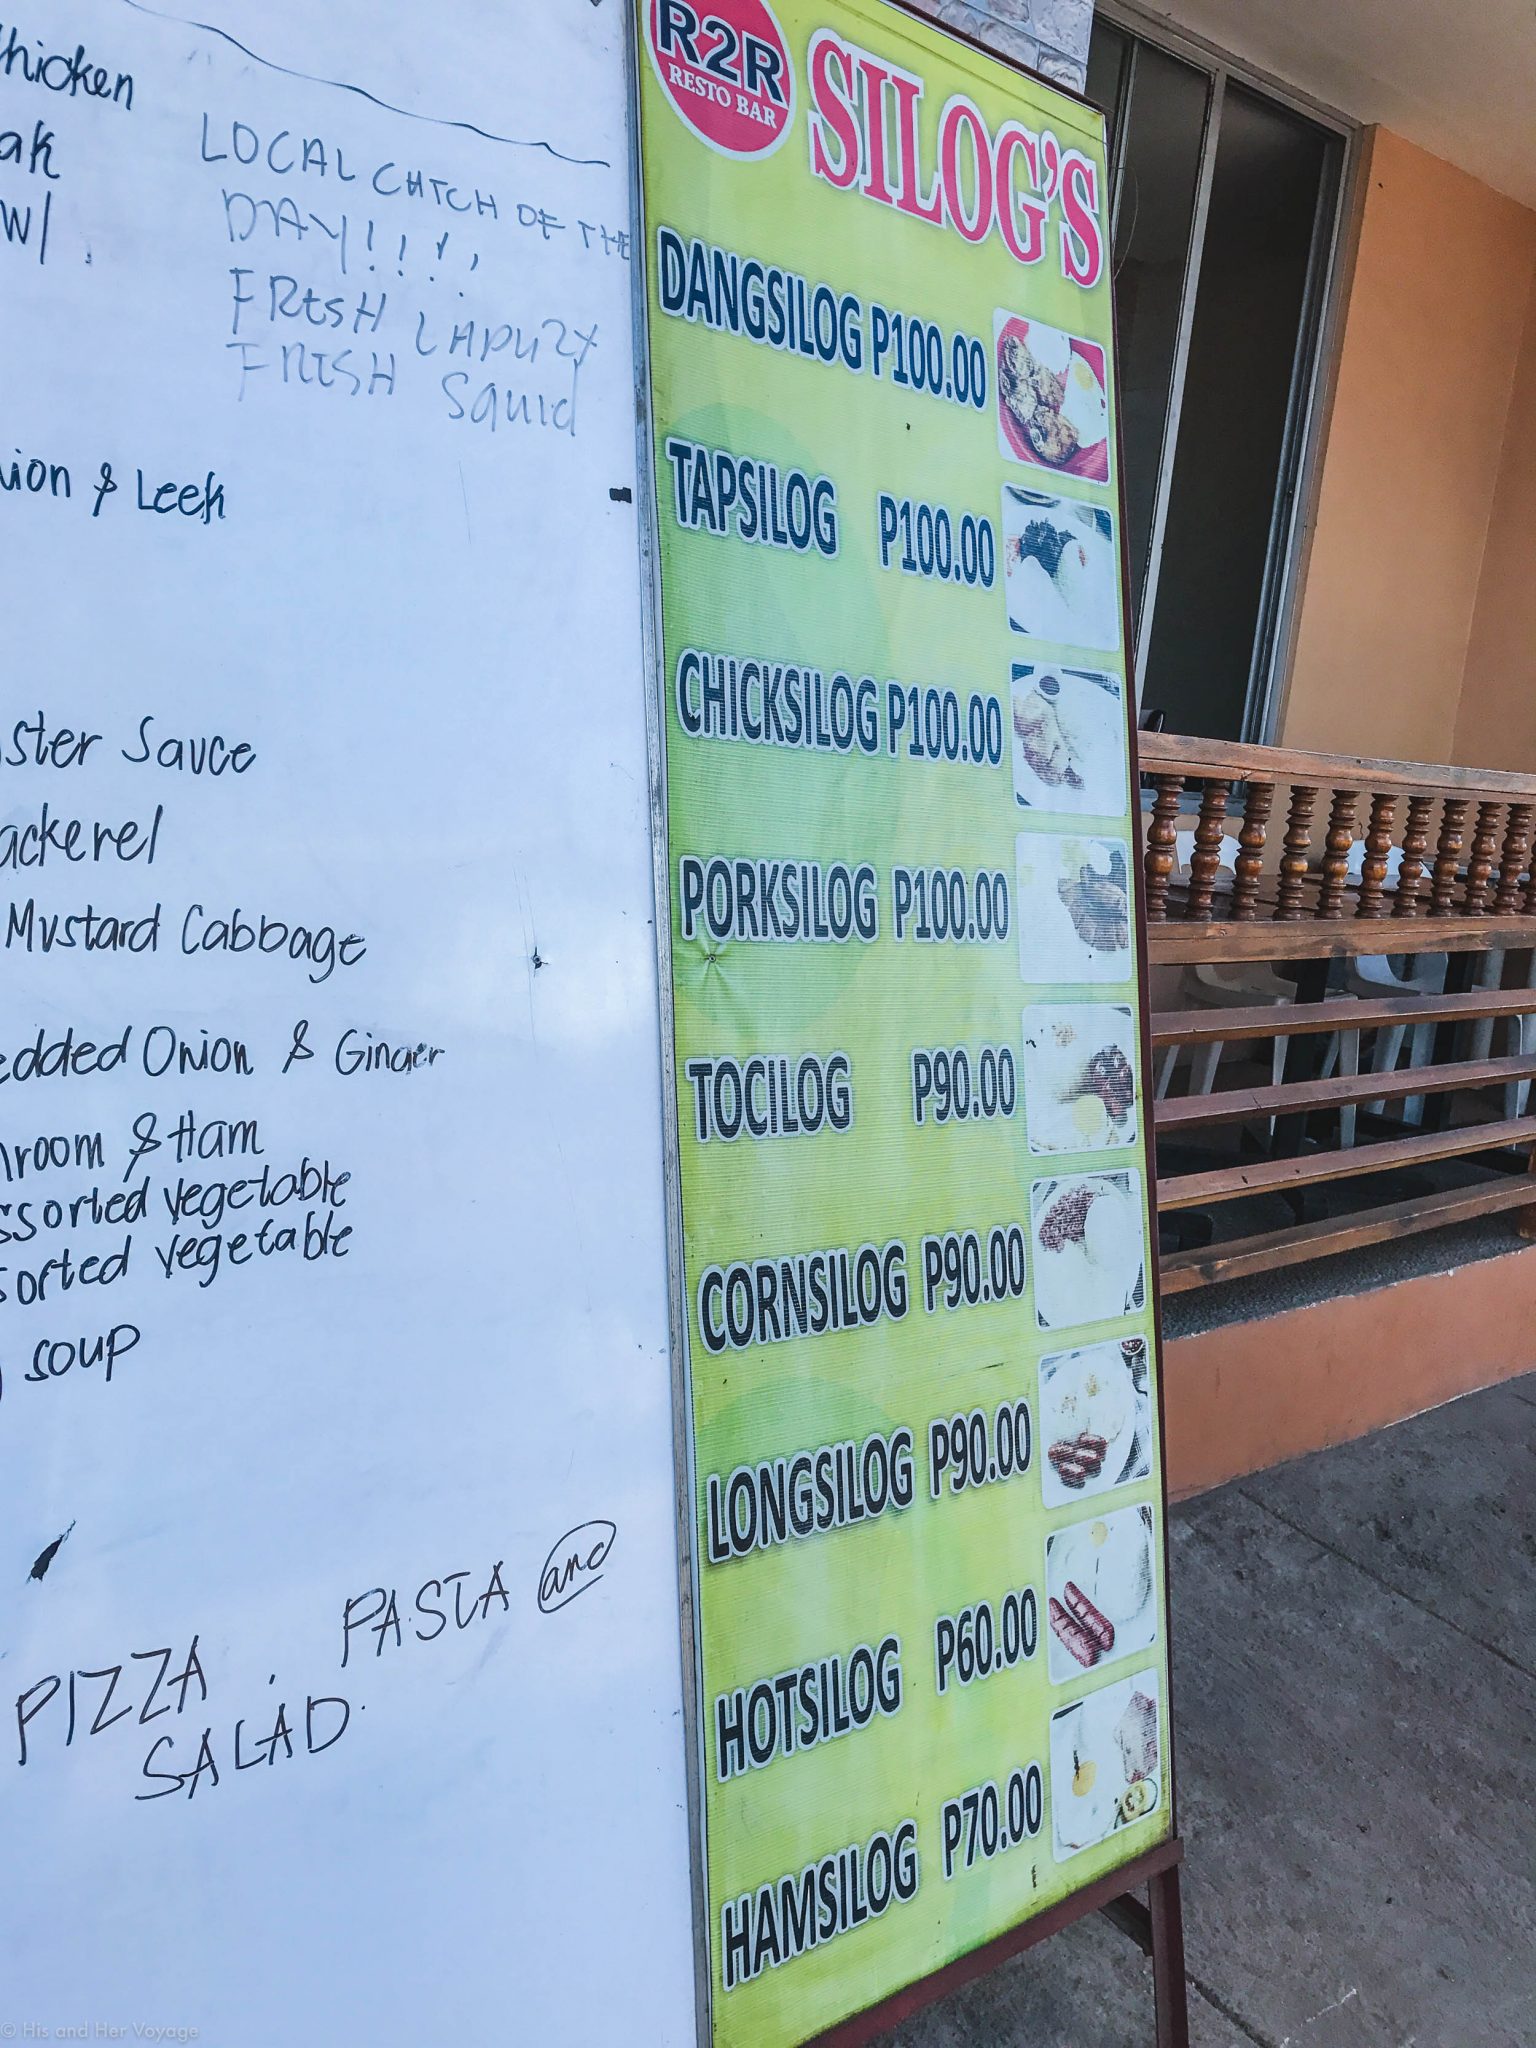 R2R
RESTO BAR
SILOG'S
DANGSILOG P100.00
TAPSILOG P100.00
CHICKSILOG P100.00
PORKSILOG P100.00
TOCILOG P90.00
CORNSILOG P90.00
LONGSILOG P90.00
HOTSILOG P60.00
HAMSILOG P70.00
hicken
ak
W/
LOCAL CATCH OF THE
DAY!!!!
FRESH
FRESH Squid
ion & Leek
ster Sauce
ackerel
Mustard Cabbage
edded Onion & Ginger
hroom & Ham
ssorted vegetable
sorted vegetable
soup
PIZZA . PASTA and
SALAD.
© His and Her Voyage